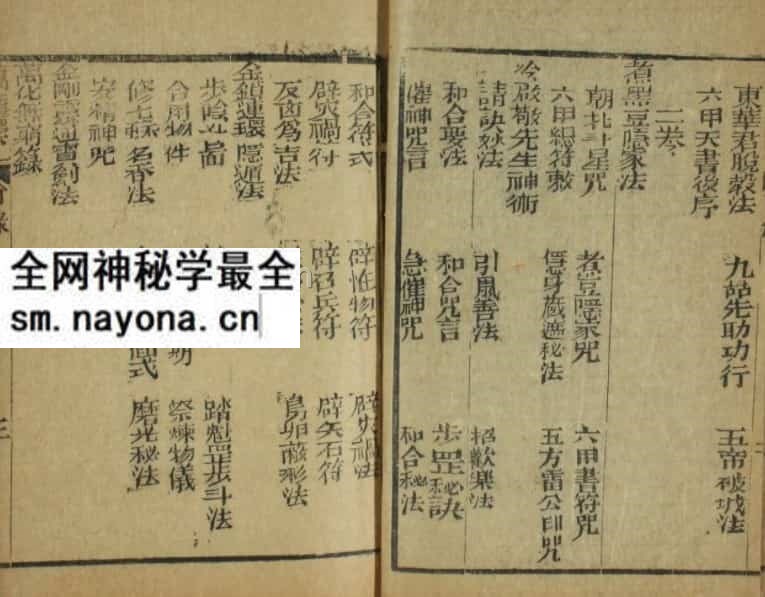 東華君脫殼法 九姑先助功行 五帝破城法
六甲天書後序
二卷
煮黑豆隱家法
朝北斗星咒 煮豆隱家咒 六甲書符咒
六甲總符敕 隱身藏遁秘法 五方雷公印咒
先生神術
請訣玅法 引風善法 招歡樂法
和合要法 和合咒言 步罡秘訣
催神咒言 急催神咒 和合秘法
和合符式 辟怪物符
辟災禍符 符 辟矢石符
反凶為吉法 鳥卵蔽形法
金鎖連環隱遁法
步陰 踏魁罡步斗法
合用物件 期 祭煉物儀
修 名香法 式 磨光秘法
安精神咒
金剛靈通寶劍法
萬化無窮錄
三
全网神秘学最全
sm.nayona.cn